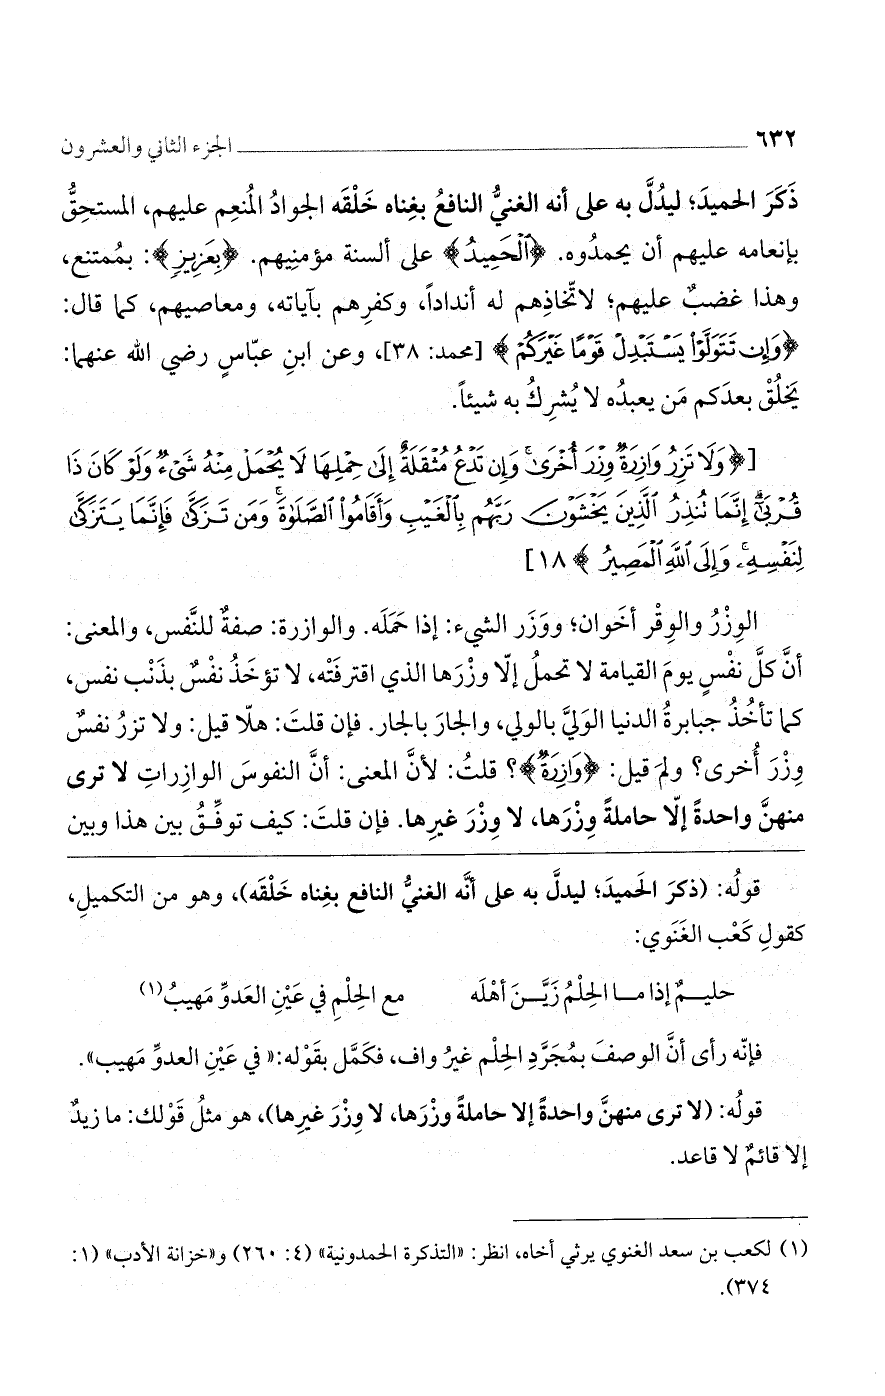 ٦٣٢ ــــــ الجزء الثاني والعشرون
ذَكَرَ الحميدَ؛ ليدُلَّ به على أنه الغنيُّ النافعُ بغِناه خَلْقَه الجوادُ المُنعِم عليهم، المستحِقُّ
بإنعامه عليهم أن يحمدُوه. ﴿ٱلْحَمِيدُ﴾ على ألسنة مؤمنِيهم. ﴿بِعَزِيزٍ﴾: بمُمتنع،
وهذا غضبٌ عليهم؛ لاتّخاذِهم له أنداداً، وكفرِهم بآياته، ومعاصيهم، كما قال:
﴿وَإِن تَتَوَلَّوْا۟ يَسْتَبْدِلْ قَوْمًا غَيْرَكُمْ﴾ [محمد: ٣٨]، وعن ابنِ عبّاسٍ رضي الله عنهما:
يَخلُقْ بعدَكم مَن يعبدُه لا يُشرِكُ به شيئاً.
[﴿وَلَا تَزِرُ وَازِرَةٌ وِزْرَ أُخْرَىٰ ۚ وَإِن تَدْعُ مُثْقَلَةٌ إِلَىٰ حِمْلِهَا لَا يُحْمَلْ مِنْهُ شَىْءٌ وَلَوْ كَانَ ذَا
قُرْبَىٰٓ ۗ إِنَّمَا تُنذِرُ ٱلَّذِينَ يَخْشَوْنَ رَبَّهُم بِٱلْغَيْبِ وَأَقَامُوا۟ ٱلصَّلَوٰةَ ۚ وَمَن تَزَكَّىٰ فَإِنَّمَا يَتَزَكَّىٰ
لِنَفْسِهِۦ ۚ وَإِلَى ٱللَّهِ ٱلْمَصِيرُ﴾ ١٨]
الوِزْرُ والوِقْر أخَوان؛ ووَزَر الشيء: إذا حَمَلَه. والوازرة: صفةٌ للنَّفس، والمعنى:
أنَّ كلَّ نفْسٍ يومَ القيامة لا تحملُ إلّا وِزْرَها الذي اقترفَتْه، لا تؤخَذُ نفْسٌ بذَنْب نفس،
كما تأخُذُ جبابرةُ الدنيا الوَليَّ بالولي، والجارَ بالجار. فإن قلتَ: هلّا قيل: ولا تزرُ نفسٌ
وِزْرَ أُخرى؟ ولمَ قيل: ﴿وَازِرَةٌ﴾؟ قلتُ: لأنَّ المعنى: أنَّ النفوسَ الوازِراتِ لا ترى
منهنَّ واحدةً إلّا حاملةً وِزْرَها، لا وِزْرَ غيرِها. فإن قلتَ: كيف توفِّقُ بين هذا وبين
قولُه: (ذكرَ الحَميدَ؛ ليدلَّ به على أنَّه الغنيُّ النافع بغِناه خَلْقَه)، وهو من التكميلِ،
كقولِ كَعْب الغَنَوي:
حليـمٌ إذا مـا الحِلْمُ زَيَّـنَ أهْلَه مع الحِلْمِ في عَيْنِ العَدوِّ مَهيبُ(١)
فإنّه رأى أنَّ الوصفَ بمُجَرَّدِ الحِلْم غيرُ واف، فكَمَّل بقَوْله:«في عَيْنِ العدوِّ مَهيب».
قولُه: (لا ترى منهنَّ واحدةً إلا حاملةً وزْرَها، لا وِزْرَ غيرِها)، هو مثلُ قَوْلك: ما زيدٌ
إلا قائمٌ لا قاعد.
(١) لكعب بن سعد الغنوي يرثي أخاه، انظر: «التذكرة الحمدونية» (٤: ٢٦٠) و«خزانة الأدب» (١:
٣٧٤).